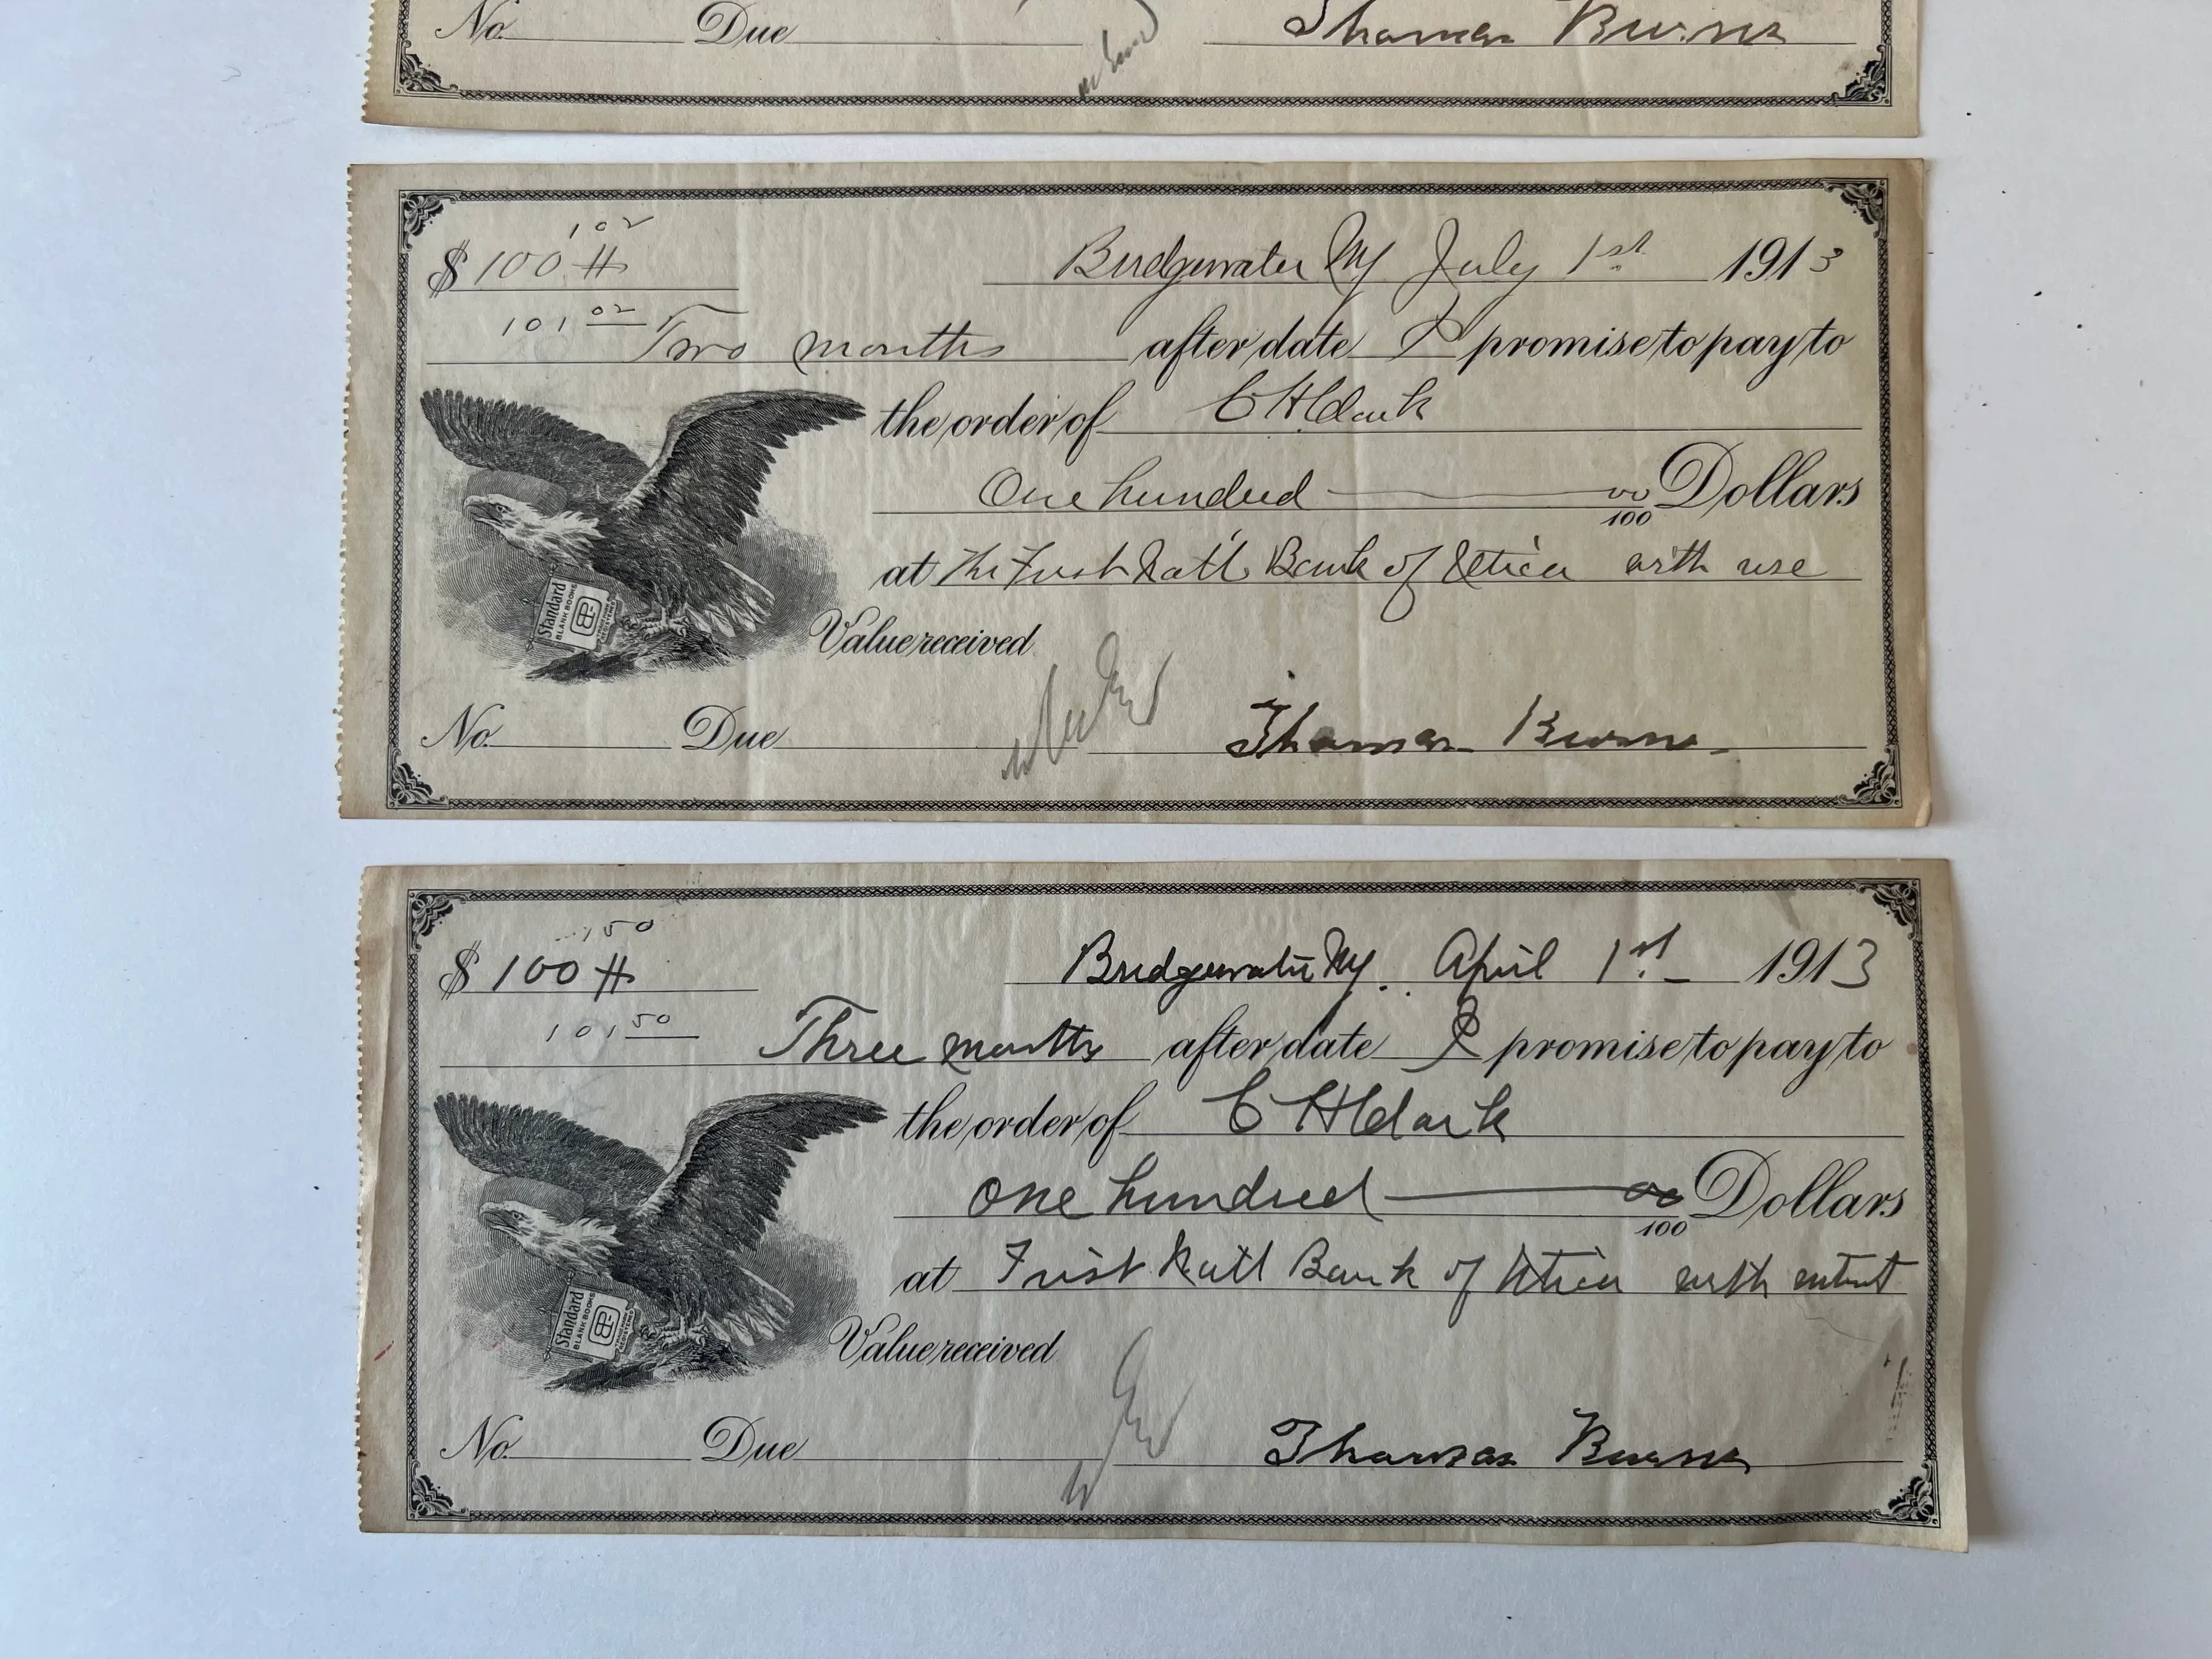 No. Due Thomas Burns
1 02
$ 100 # Bridgewater NY July 1st 1913
101 02 Two months after date I promise to pay to
the order of C H Clark
One hundred 00/100 Dollars
at The First Nat'l Bank of Utica with use
Standard
BLANK BOOKS
Value received
No. Due Thomas Burns
1 50
$ 100 # Bridgewater NY. April 1st 1913
101 50 Three months after date I promise to pay to
the order of C H Clark
One hundred 00/100 Dollars
at First Natl Bank of Utica with intrst
Standard
BLANK BOOKS
Value received
No. Due Thomas Burns